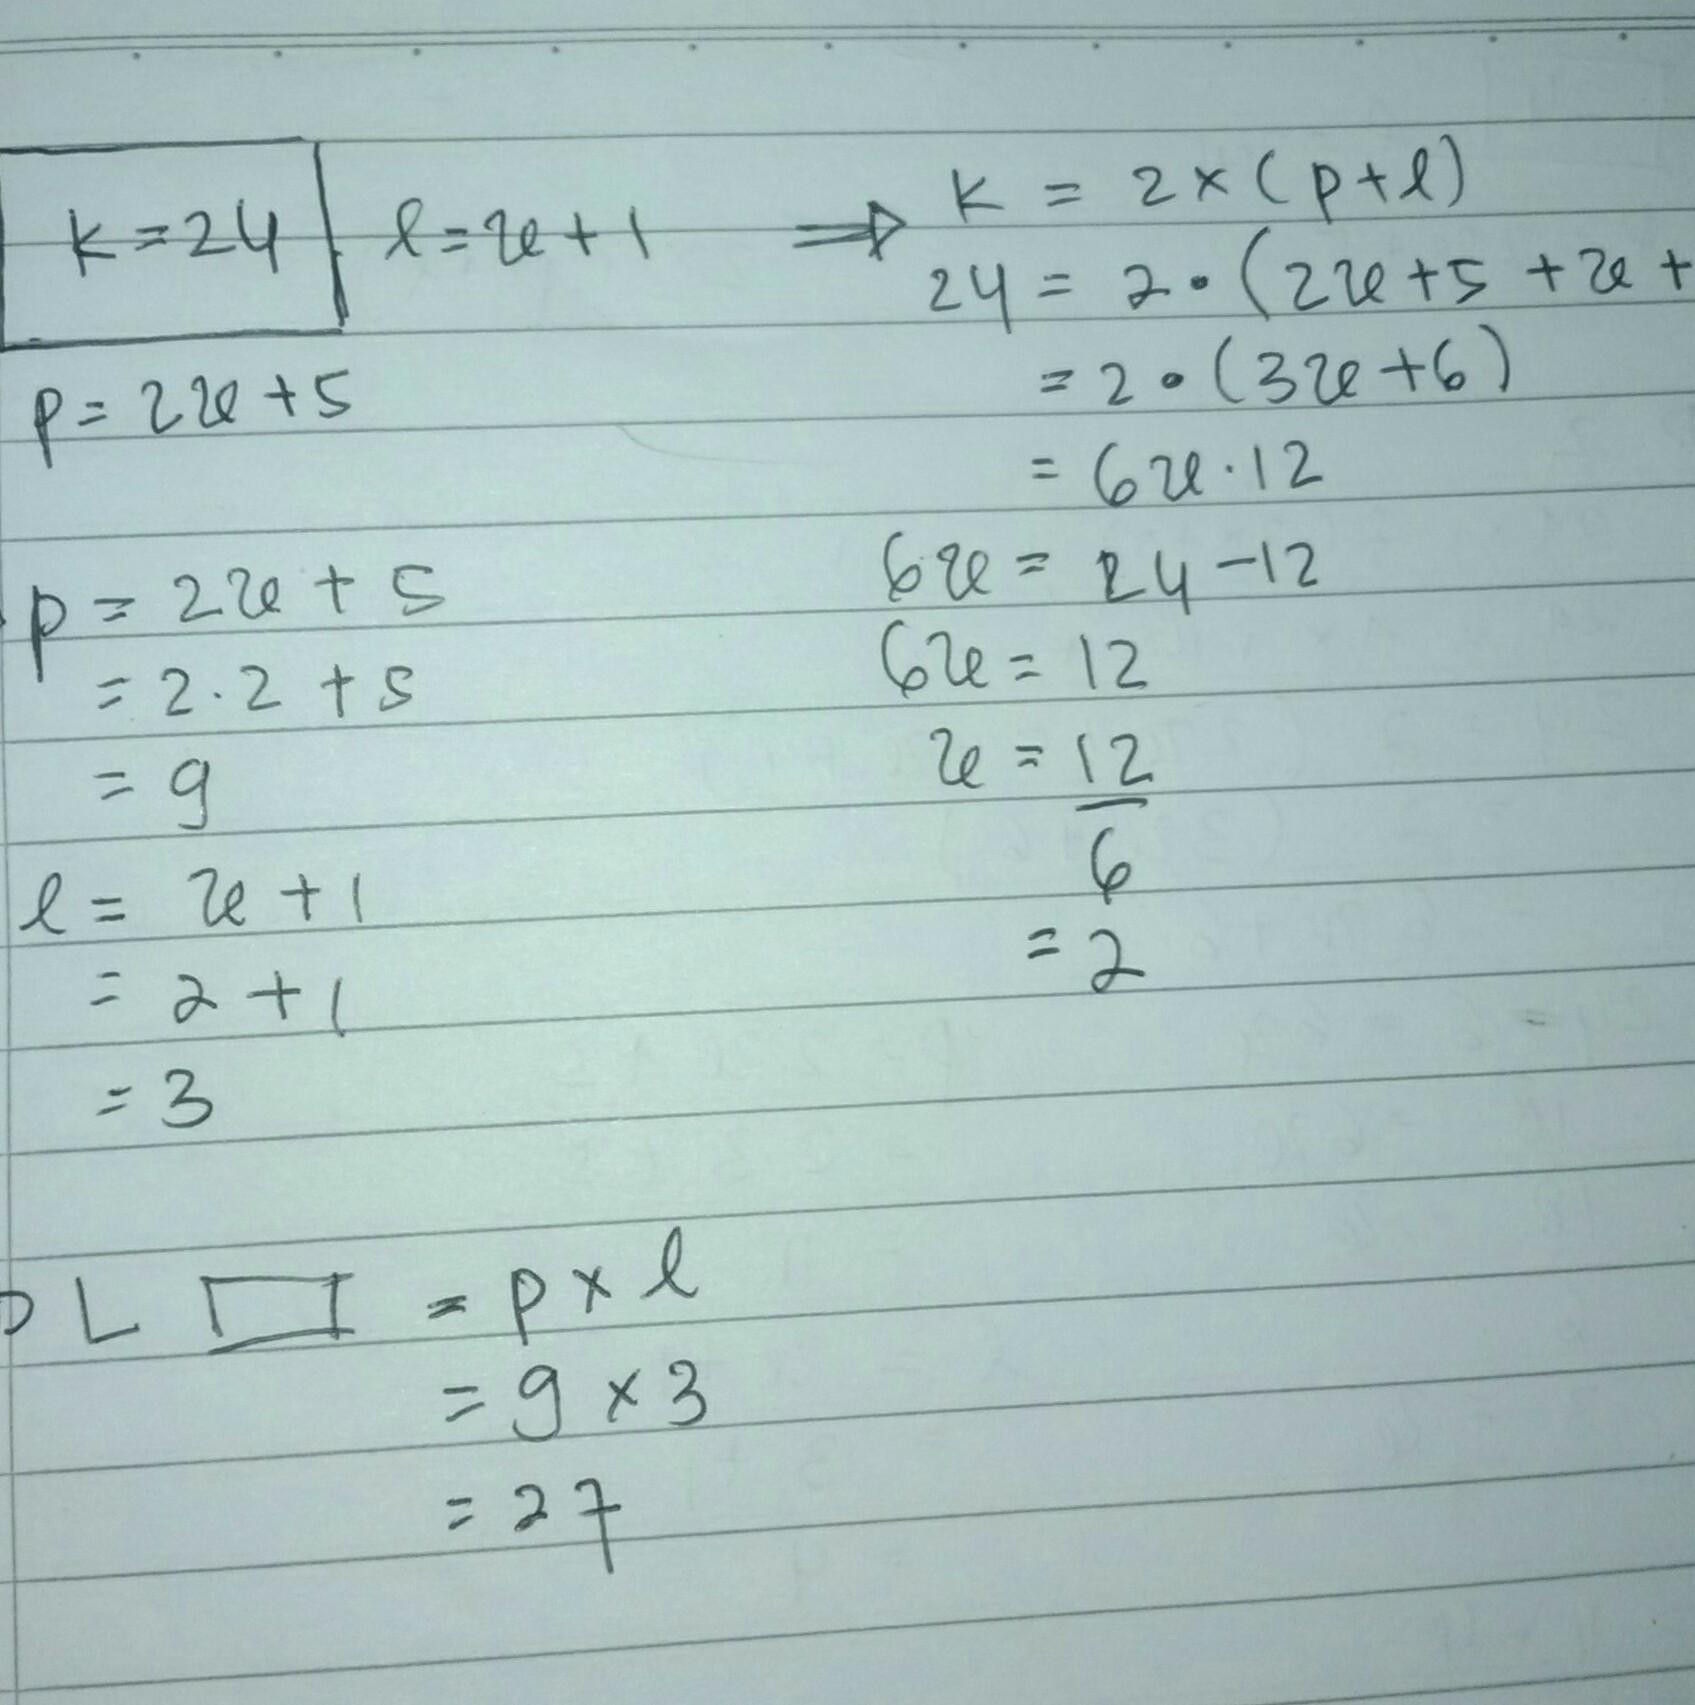 K = 24
l = x + 1
p = 2x + 5
⇒ K = 2 × (p + l)
24 = 2 • (2x + 5 + x +
= 2 • (3x + 6)
= 6x · 12
6x = 24 - 12
6x = 12
x = 12/6
= 2
p = 2x + 5
= 2 . 2 + 5
= 9
l = x + 1
= 2 + 1
= 3
L ▭ = p × l
= 9 × 3
= 27